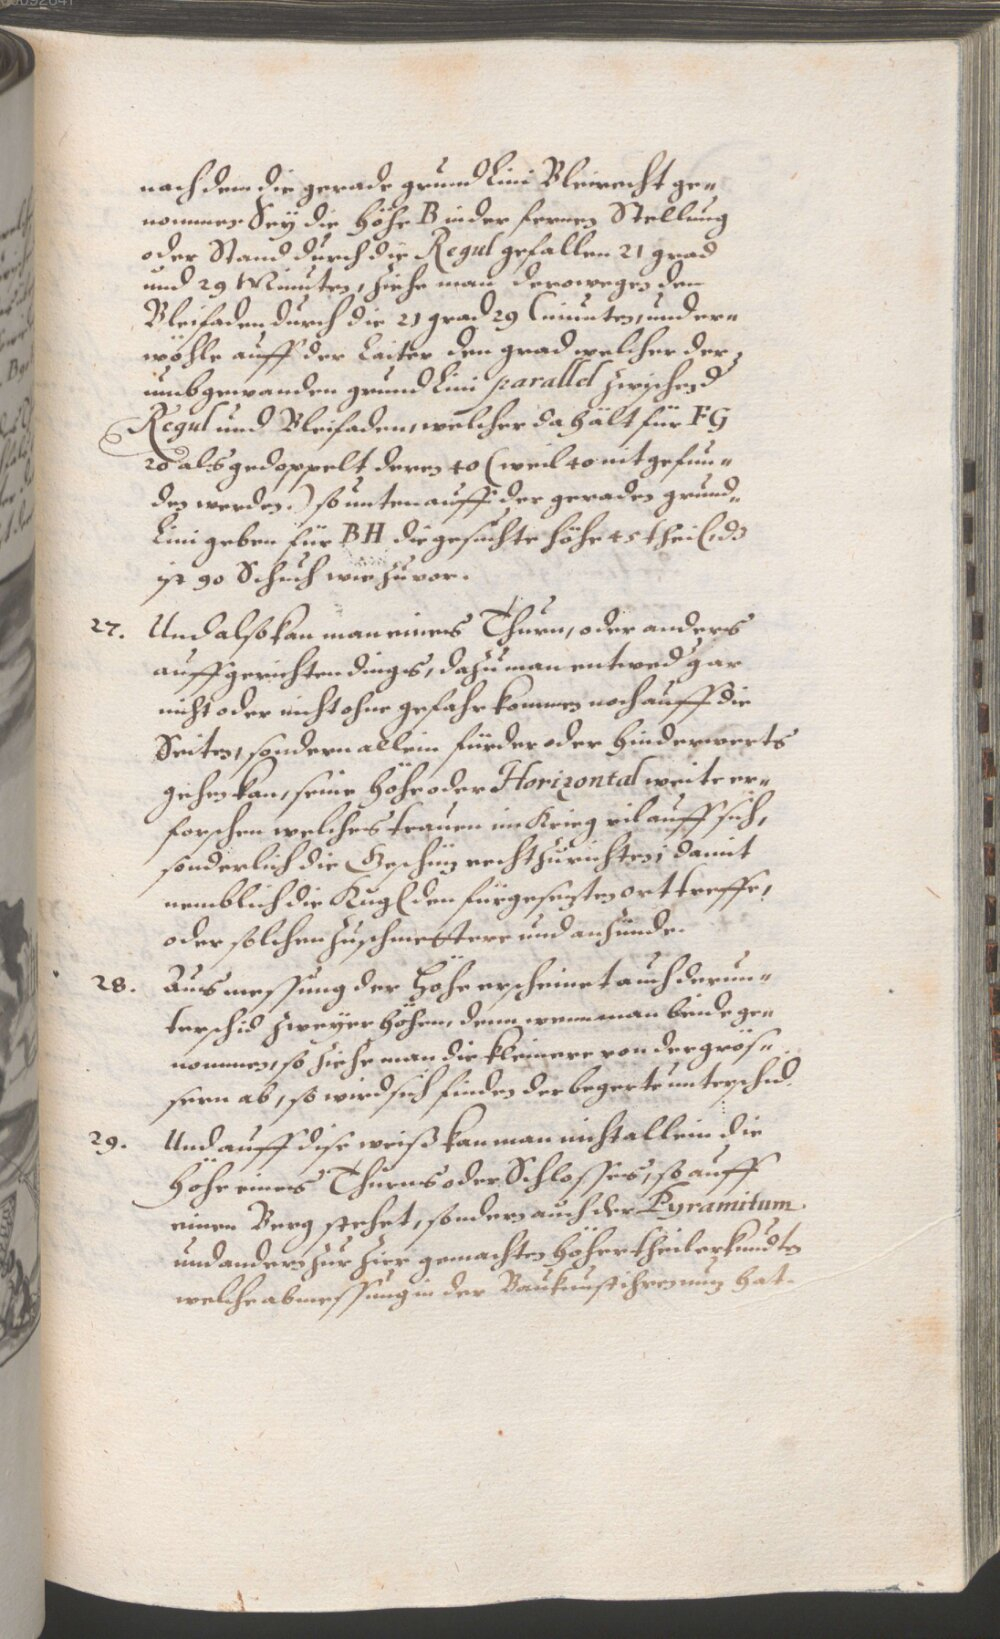 nach dem die gerade grund Lini Bleirecht ge=
nommen Seÿ die Höhe B in der fernen Stellung
oder Stand durch die Regul gefallen 21 grad
und 29 Minuten, ziehe man derowegen den
Bleifaden durch die 21 grad 29 minuten, und er=
wöhle auff der Laiter den grad welcher der
umbgewanden grund Lini parallel zwischend
Regul und Bleifaden, welcher da hält für FG
20 als gedoppelt deren 40 (weil 40 nit gefun=
den werden.) so unten auff der geraden grund=
Lini geben für BH die gesuchte höhe 45 theil, dz
ist 90 Schuch wie zuvor.
27. Und also kan man eines Thurn, oder anders
auffgerichten dings, dazu man entwed gar
nicht oder nicht ohne gefahr kommen noch auff die
Seiten, sondern allein fürder oder hinderwerts
gehen kan, seine höhe oder Horizontal weite er=
forschen welches trauen im Krieg vil auff sich,
sonderlich die Geschüz recht zurichten, damit
nemblich die Kugl den fürgesezten ort treffe,
oder solchen zuschmettere und anzünde.
28. Aus messung der Höhe erscheinet auch der un=
terschid zweÿer höhen, denn wenn man beide ge=
nommen, so ziehe man die kleinere von der grös=
sern ab, so wird sich finden der begerte unterschid.
29. Und auff dise weiß kan man nicht allein die
Höhe eines Thurns oder Schlosses, so auff
einen Berg stehet, sondern auch der Pyramitum
und andern zur zier gemachten höher theil erkundten
welche abmessung in der Baukunst ihren nuz hat.